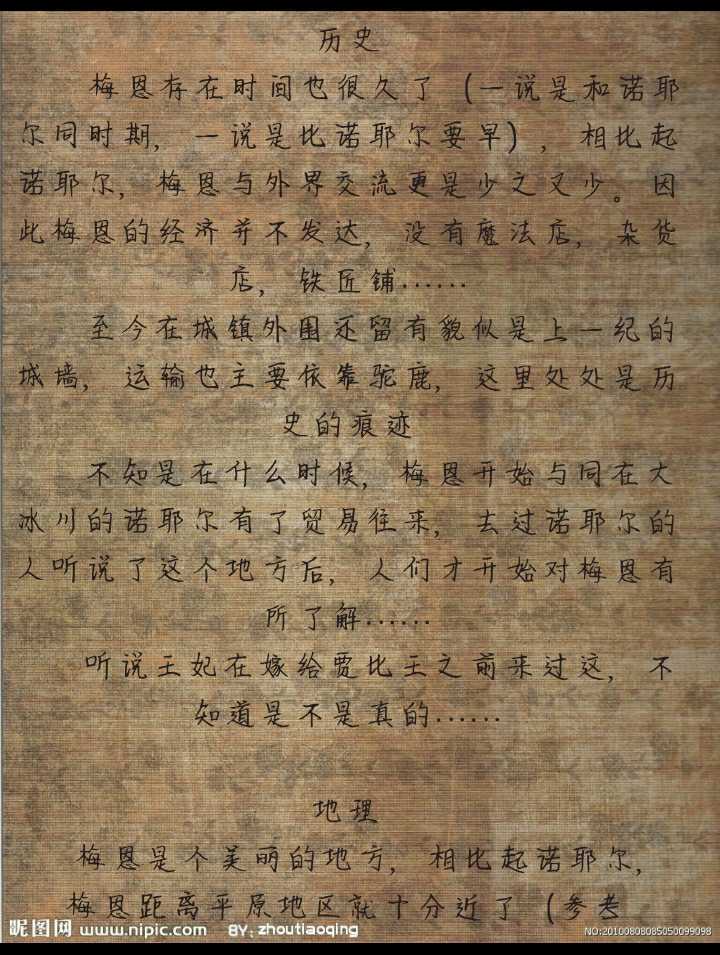 历史
梅恩存在时间也很久了（一说是和诺耶
尔同时期，一说是比诺耶尔要早），相比起
诺耶尔，梅恩与外界交流更是少之又少。因
此梅恩的经济并不发达，没有魔法店，杂货
店，铁匠铺……
至今在城镇外围还留有貌似是上一纪的
城墙，运输也主要依靠驼鹿，这里处处是历
史的痕迹
不知是在什么时候，梅恩开始与同在大
冰川的诺耶尔有了贸易往来，去过诺耶尔的
人听说了这个地方后，人们才开始对梅恩有
所了解……
听说王妃在嫁给贾比王之前来过这，不
知道是不是真的……
地理
梅恩是个美丽的地方，相比起诺耶尔，
梅恩距离平原地区就十分近了（参考
昵图网 www.nipic.com BY: zhoutiaoqing NO:20100808085050099098